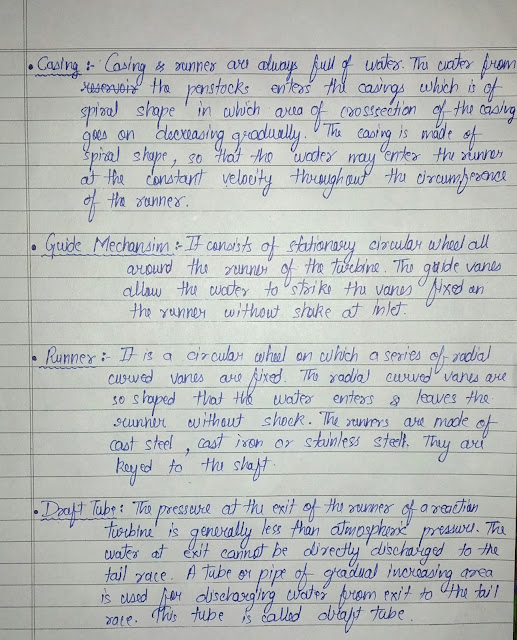 • Casing :- Casing & runner are always full of water. The water from
reservoir the penstocks enters the casings which is of
spiral shape in which area of crosssection of the casing
goes on decreasing gradually. The casing is made of
spiral shape, so that the water may enter the runner
at the constant velocity throughout the circumference
of the runner.
• Guide Mechansim :- It consists of stationary circular wheel all
around the runner of the turbine. The guide vanes
allow the water to strike the vanes fixed on
the runner without shake at inlet.
• Runner :- It is a circular wheel on which a series of radial
curved vanes are fixed. The radial curved vanes are
so shaped that the water enters & leaves the
runner without shock. The runners are made of
cast steel, cast iron or stainless steel. They are
keyed to the shaft.
• Draft Tube : The pressure at the exit of the runner of a reaction
turbine is generally less than atmospheric pressure. The
water at exit cannot be directly discharged to the
tail race. A tube or pipe of gradual increasing area
is used for discharging water from exit to the tail
race. This tube is called draft tube.